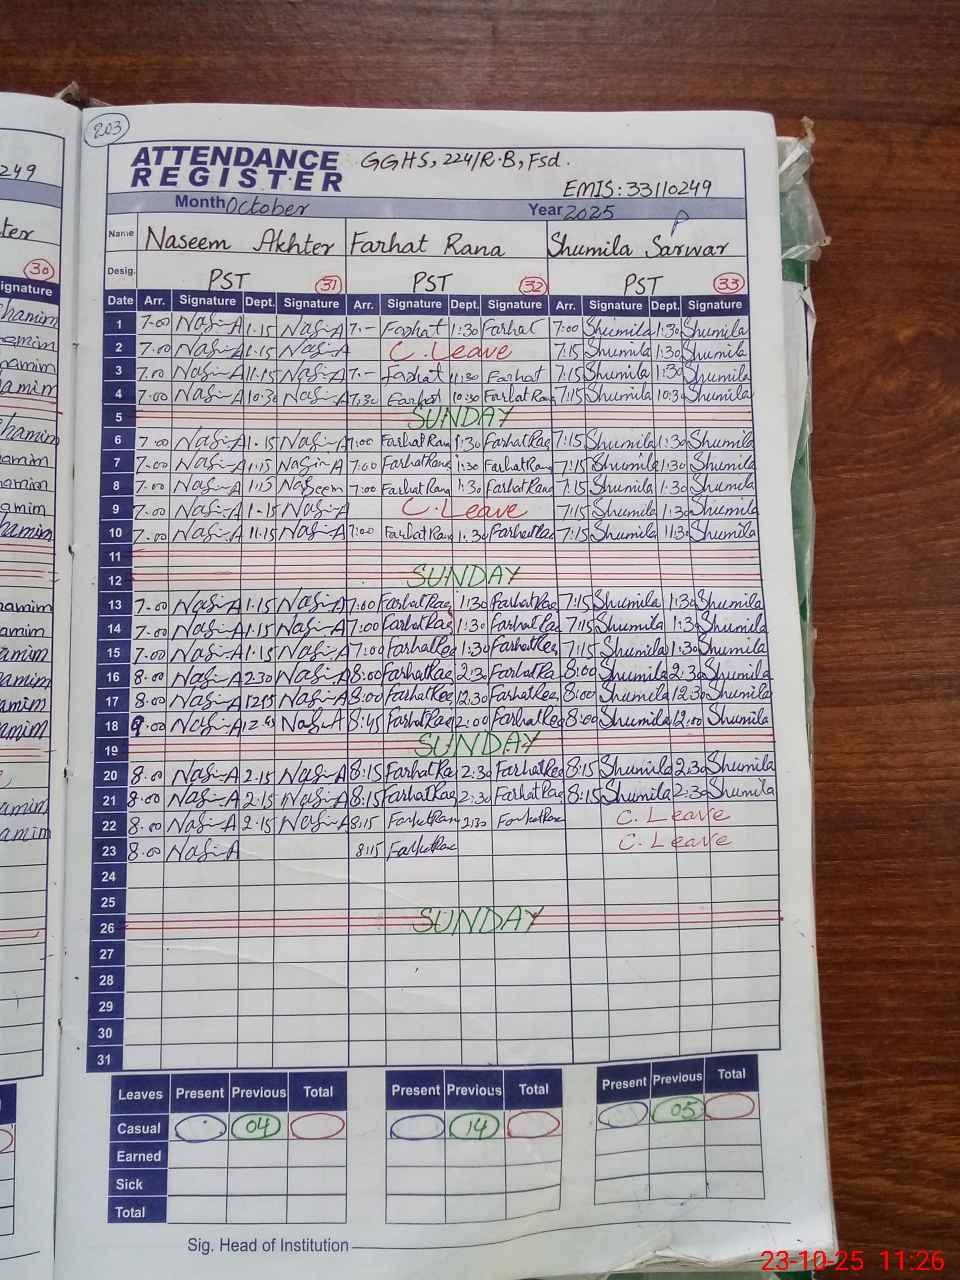 203
ATTENDANCE REGISTER
GGHS, 224/R.B, Fsd.
EMIS: 33110249
Month October Year 2025
P
Name Naseem Akhter Farhat Rana Shumila Sarwar
Desig. PST 31 PST 32 PST 33
Date Arr. Signature Dept. Signature Arr. Signature Dept. Signature Arr. Signature Dept. Signature
1 7.00 Nasi-A 1.15 Nasi-A 7.- Farhat 1:30 Farhat 7:00 Shumila 1:30 Shumila
2 7.00 Nasi-A 1.15 Nasi-A C. Leave 7:15 Shumila 1:30 Shumila
3 7.00 Nasi-A 1.15 Nasi-A 7.- Farhat 1:30 Farhat 7:15 Shumila 1:30 Shumila
4 7.00 Nasi-A 10.30 Nasi-A 7.30 Farhat 10:30 Farhat Rana 7:15 Shumila 10:30 Shumila
5 SUNDAY
6 7.00 Nasi-A 1.15 Nasi-A 7:00 Farhat Rana 1:30 Farhat Rana 7:15 Shumila 1:30 Shumila
7 7.00 Nasi-A 1.15 Nasi-A 7:00 Farhat Rana 1:30 Farhat Rana 7:15 Shumila 1:30 Shumila
8 7.00 Nasi-A 1.15 Naseem 7:00 Farhat Rana 1:30 Farhat Rana 7:15 Shumila 1:30 Shumila
9 7.00 Nasi-A 1.15 Nasi-A C. Leave 7:15 Shumila 1:30 Shumila
10 7.00 Nasi-A 11.15 Nasi-A 7:00 Farhat Rana 1:30 Farhat Rana 7:15 Shumila 11:30 Shumila
11
12 SUNDAY
13 7.00 Nasi-A 1.15 Nasi-A 7:00 Farhat Rana 1:30 Farhat Rana 7:15 Shumila 1:30 Shumila
14 7.00 Nasi-A 1.15 Nasi-A 7:00 Farhat Rana 1:30 Farhat Rana 7:15 Shumila 1:30 Shumila
15 7.00 Nasi-A 1.15 Nasi-A 7:00 Farhat Rana 1:30 Farhat Rana 7:15 Shumila 1:30 Shumila
16 8.00 Nasi-A 2.30 Nasi-A 8:00 Farhat Rana 2:30 Farhat Rana 8:00 Shumila 2:30 Shumila
17 8.00 Nasi-A Nasi-A 8:00 Farhat Rana 12:30 Farhat Rana 8:00 Shumila 12:30 Shumila
18 9.00 Nasi-A 12.45 Nasi-A 8:45 Farhat Rana 2:00 Farhat Rana 8:00 Shumila 12:00 Shumila
19 SUNDAY
20 8.00 Nasi-A 2.15 Nasi-A 8:15 Farhat Rana 2:30 Farhat Rana 8:15 Shumila 2:30 Shumila
21 8.00 Nasi-A 2.15 Nasi-A 8:15 Farhat Rana 2:30 Farhat Rana 8:15 Shumila 2:30 Shumila
22 8.00 Nasi-A 2.15 Nasi-A 8:15 Farhat Rana 2:30 Farhat Rana C. Leave
23 8.00 Nasi-A 8:15 Farhat Rana C. Leave
24
25
26 SUNDAY
27
28
29
30
31
Leaves Present Previous Total Present Previous Total Present Previous Total
Casual 04 14 05
Earned
Sick
Total
Sig. Head of Institution
23-10-25 11:26